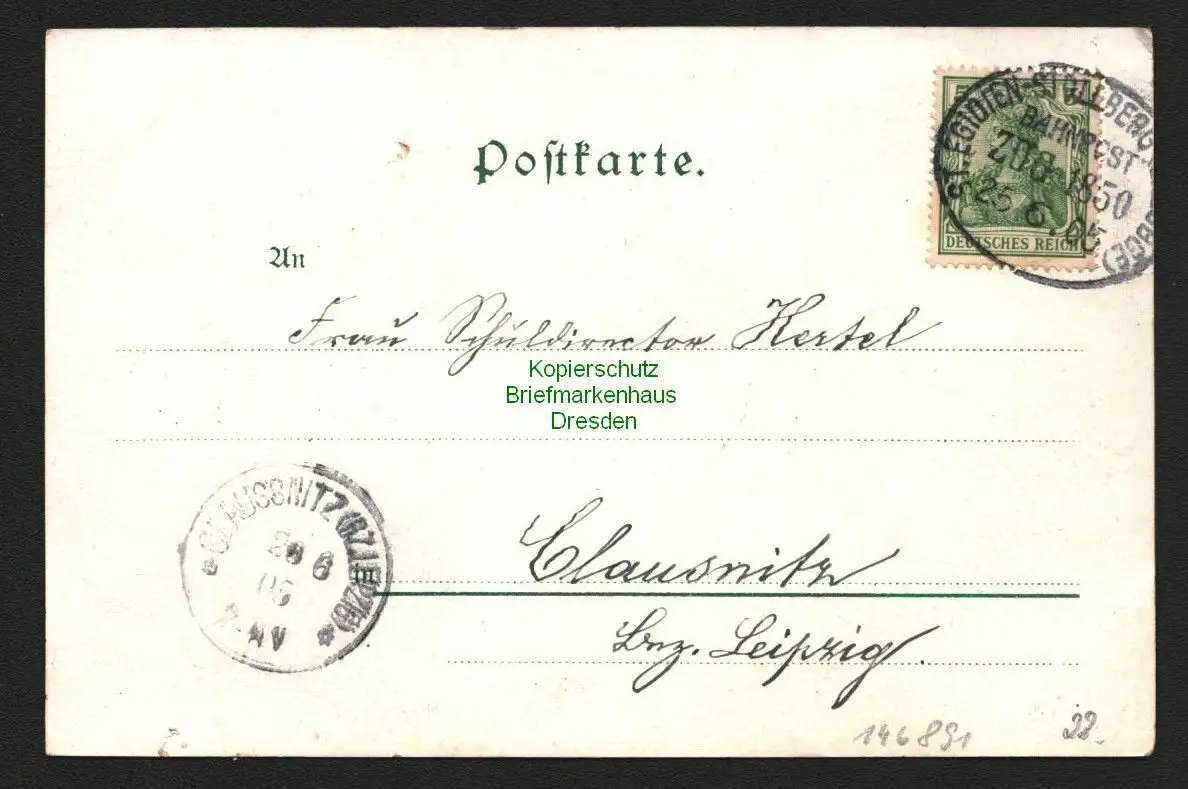 Postkarte.
5
DEUTSCHES REICH
ST. EGIDIEN-STOLLBERG
BAHNPOST
ZUG 1850
25 6. 05
An
Frau Schuldirector Hertel
Kopierschutz
Briefmarkenhaus
Dresden
CLAUSSNITZ (BZ. LEIPZIG)
26 6
05
in
Clausnitz
Bez. Leipzig.
146891
22.